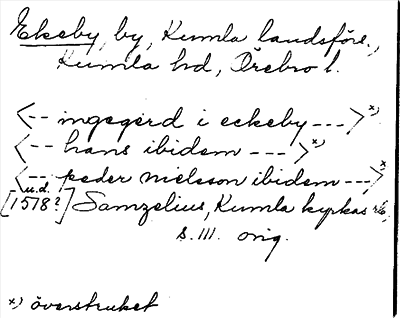 Ekeby, by, Kumla landsförs.,
Kumla hd, Örebro l.
<-- ingegerd i eckeby --->x)
<-- hans ibidem --->x)
<-- peder nielsson ibidem --->x
u.d.
[1578?] Samzelius, Kumla kyrkas
s. 111. orig.
x) överstruket